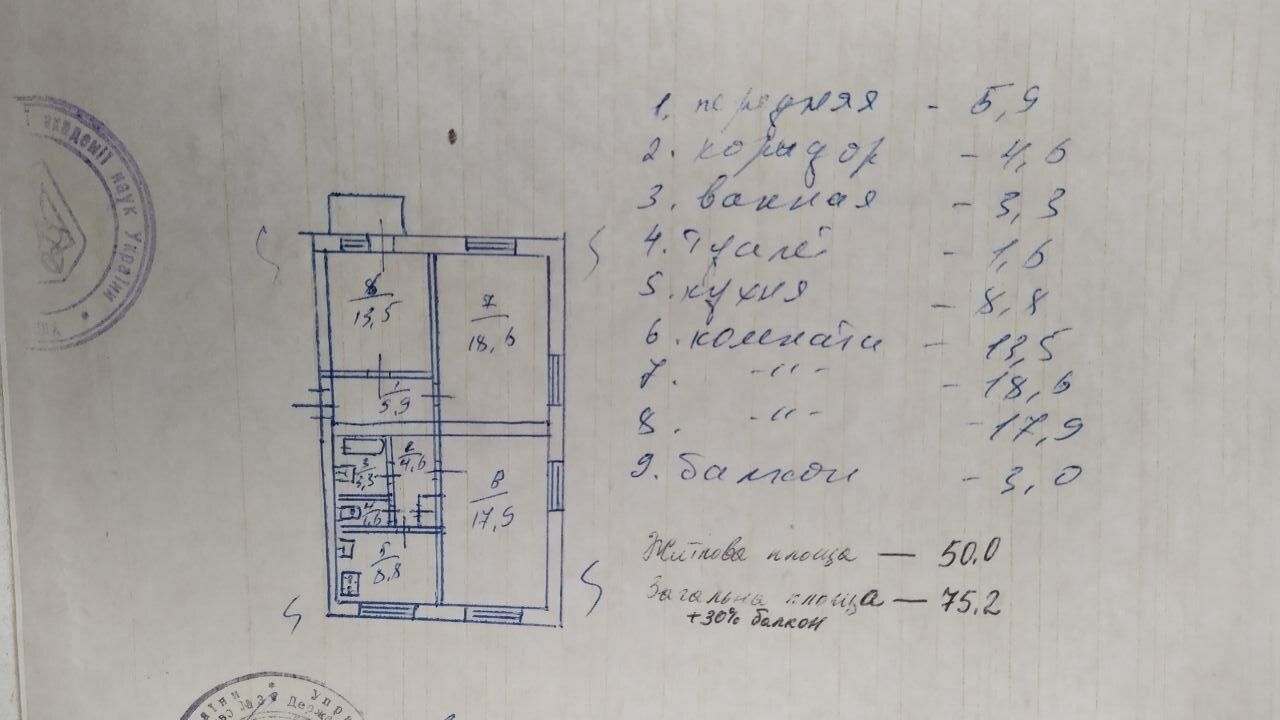 академії наук України
1. передняя - 5,9
2. коридор - 4,6
3. ванная - 3,3
4. туалет - 1,6
5. кухня - 8,8
6. комнаты - 13,5
7. -"- - 18,6
8. -"- - 17,9
9. балкон - 3,0
Житлова площа — 50.0
Загальна площа — 75,2
+30% балкон
13,5
7
18,6
1
5,9
2
4,6
3
3,3
4
1,6
8
17,9
5
8,8